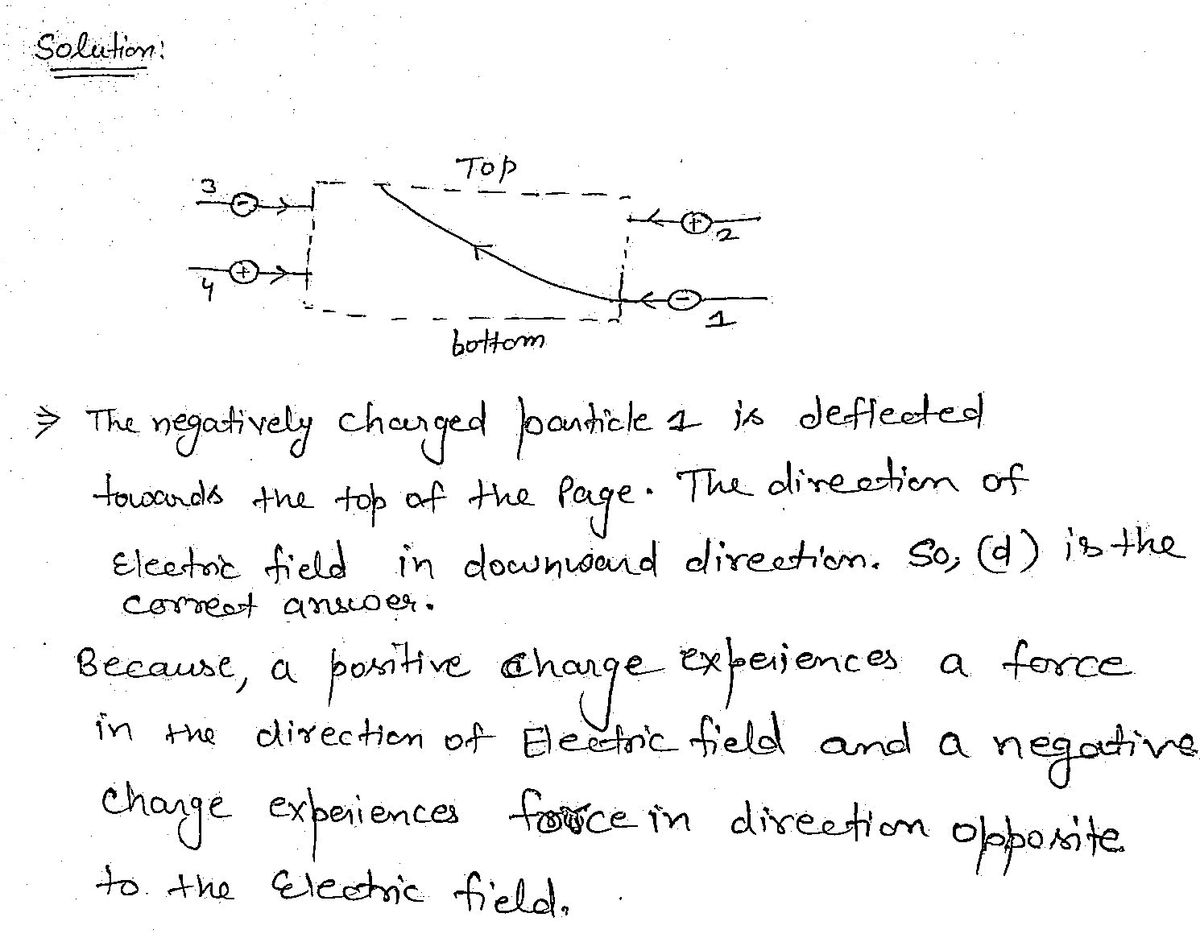 Solution:
Top
3 -
+ 2
4 +
- 1
bottom
⇒ The negatively charged particle 1 is deflected
towards the top of the Page. The direction of
Electric field in downward direction. So, (d) is the
correct answer.
Because, a positive charge experiences a force
in the direction of Electric field and a negative
charge experiences force in direction opposite
to the Electric field.